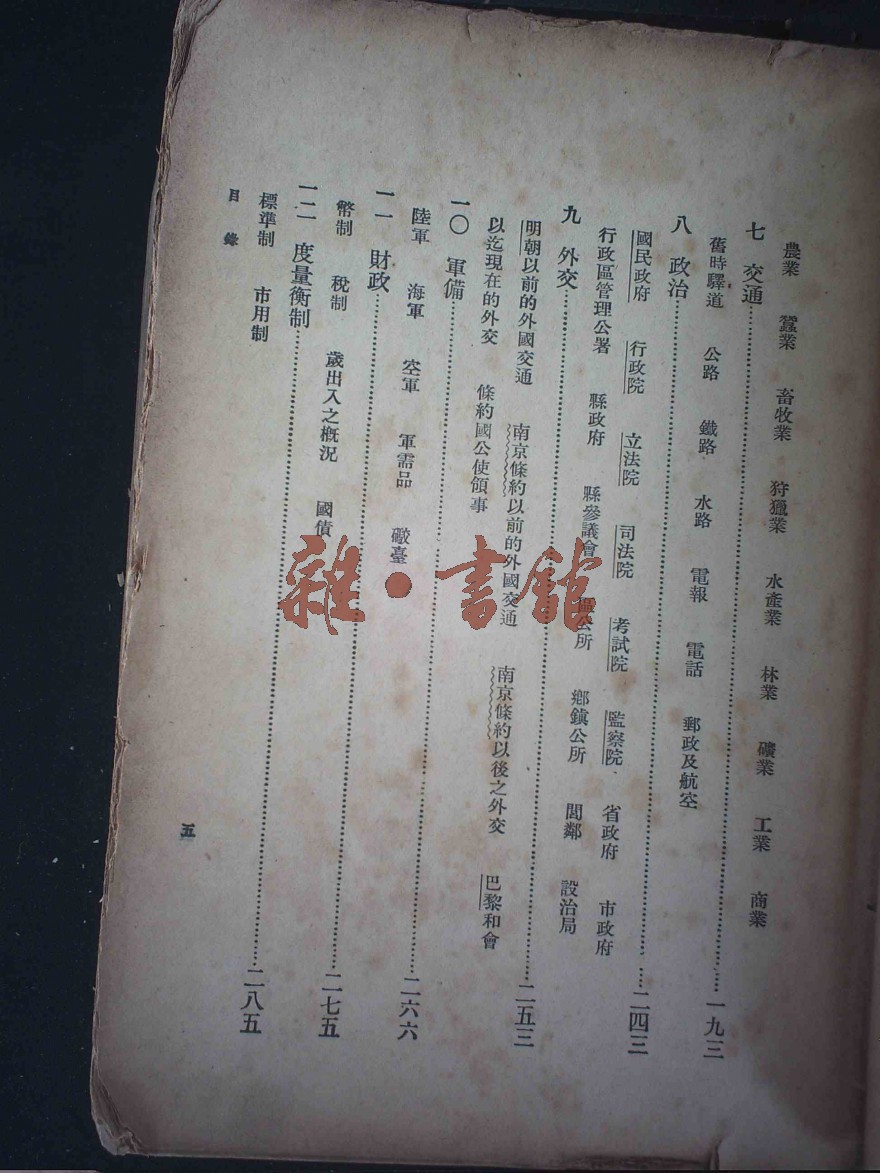 農業　蠶業　畜牧業　狩獵業　水產業　林業　礦業　工業　商業
七　交通……一九三
舊時驛道　公路　鐵路　水路　電報　電話　郵政及航空
八　政治……二四三
國民政府　行政院　立法院　司法院　考試院　監察院　省政府　市政府
行政區管理公署　縣政府　縣參議會　區公所　鄉鎮公所　閭鄰　設治局
九　外交……二五三
明朝以前的外國交通　南京條約以前的外國交通　南京條約以後之外交　巴黎和會
以迄現在的外交　條約國公使領事
一〇　軍備……二六六
陸軍　海軍　空軍　軍需品　礮臺
一一　財政……二七五
幣制　稅制　歲出入之概況　國債
一二　度量衡制……二八五
標準制　市用制
目錄　五
雜·書館